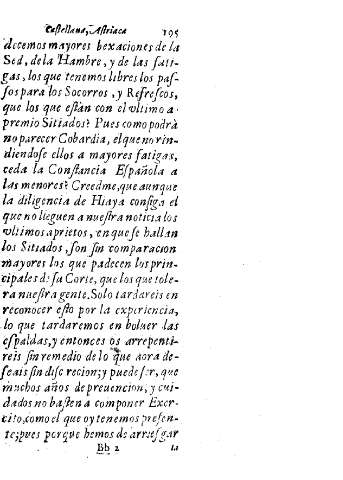 Castellana, Astriaca 195
decemos mayores bexaciones de la
Sed, de la Hambre, y de las fati-
gas, los que tenemos libres los pas-
sos para los Socorros, y Refrescos,
que los que están con el vltimo a-
premio Sitiados? Pues como podrà
no parecer Cobardia, el que no rin-
diendose ellos a mayores fatigas,
ceda la Constancia Española a
las menores? Creedme, que aunque
la diligencia de Hiaya consiga el
que no lleguen a nuestra noticia los
vltimos aprietos, en que se hallan
los Sitiados, son sin comparacion
mayores los que padecen los prin-
cipales de su Corte, que los que tole-
ra nuestra gente. Solo tardareis en
reconocer esto por la experiencia,
lo que tardaremos en boluer las
espaldas, y entonces os arrepenti-
reis sin remedio de lo que aora de-
seais sin discrecion; y puede ser, que
muchos años de preuencion, y cui-
dados no basten a componer Exer-
cito, como el que oy tenemos presen-
te; pues porque hemos de arriesgar
Bb 2 la